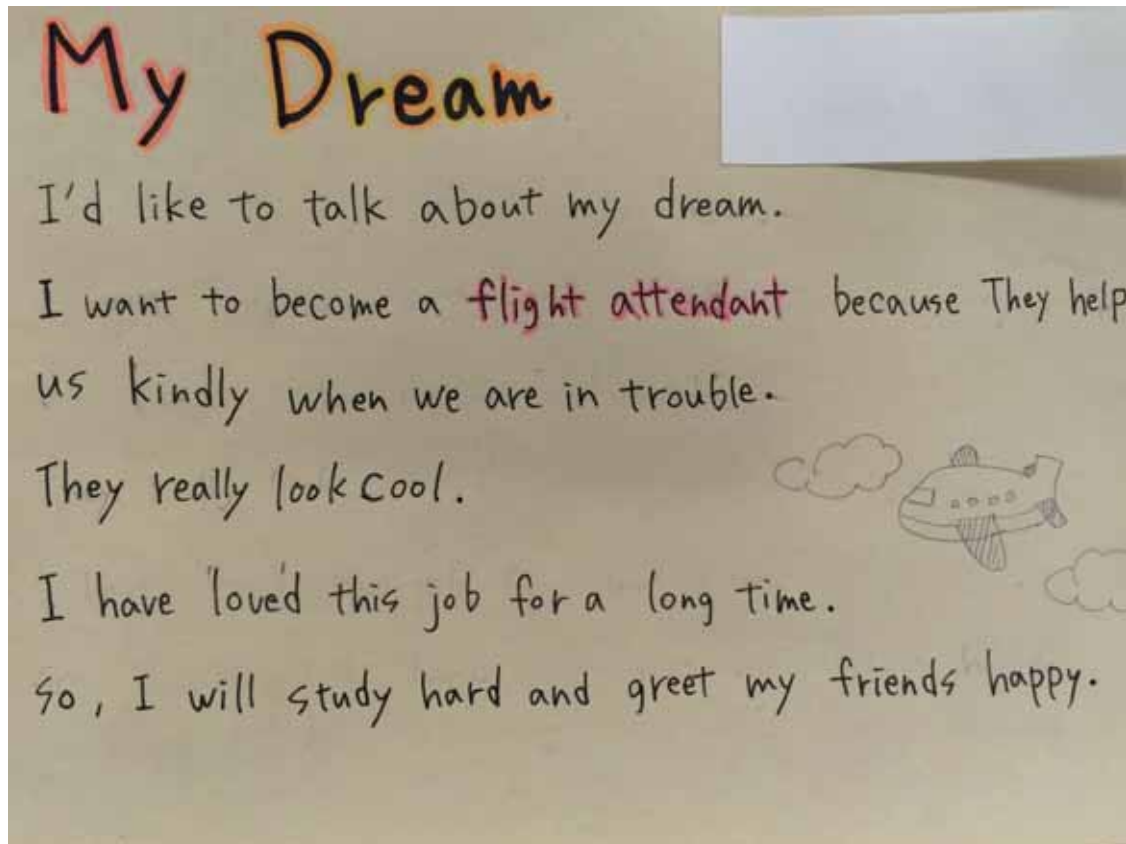 My Dream
I'd like to talk about my dream.
I want to become a flight attendant because They help
us kindly when we are in trouble.
They really look cool.
I have loved this job for a long time.
so, I will study hard and greet my friends happy.